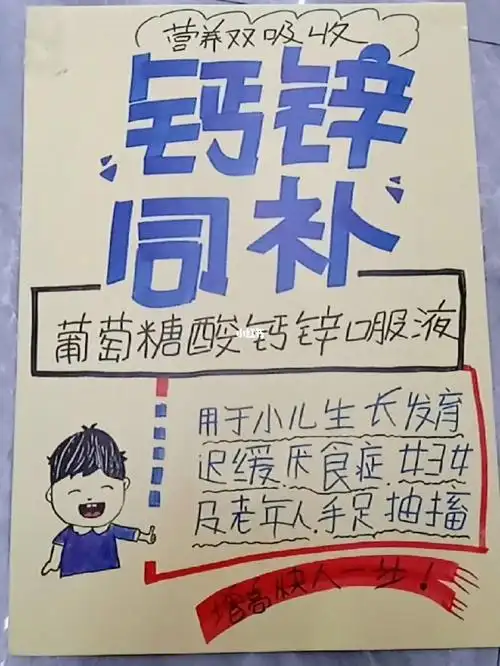 营养双吸收
钙锌
同补
葡萄糖酸钙锌口服液
小红书
用于小儿生长发育
迟缓.厌食症.妇女
及老年人.手足抽搐
增高快人一步！